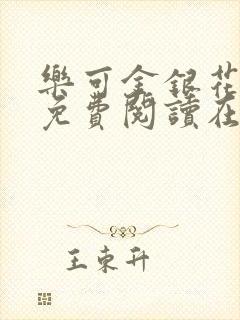 樂可金銀花
免費閱讀在
王東升